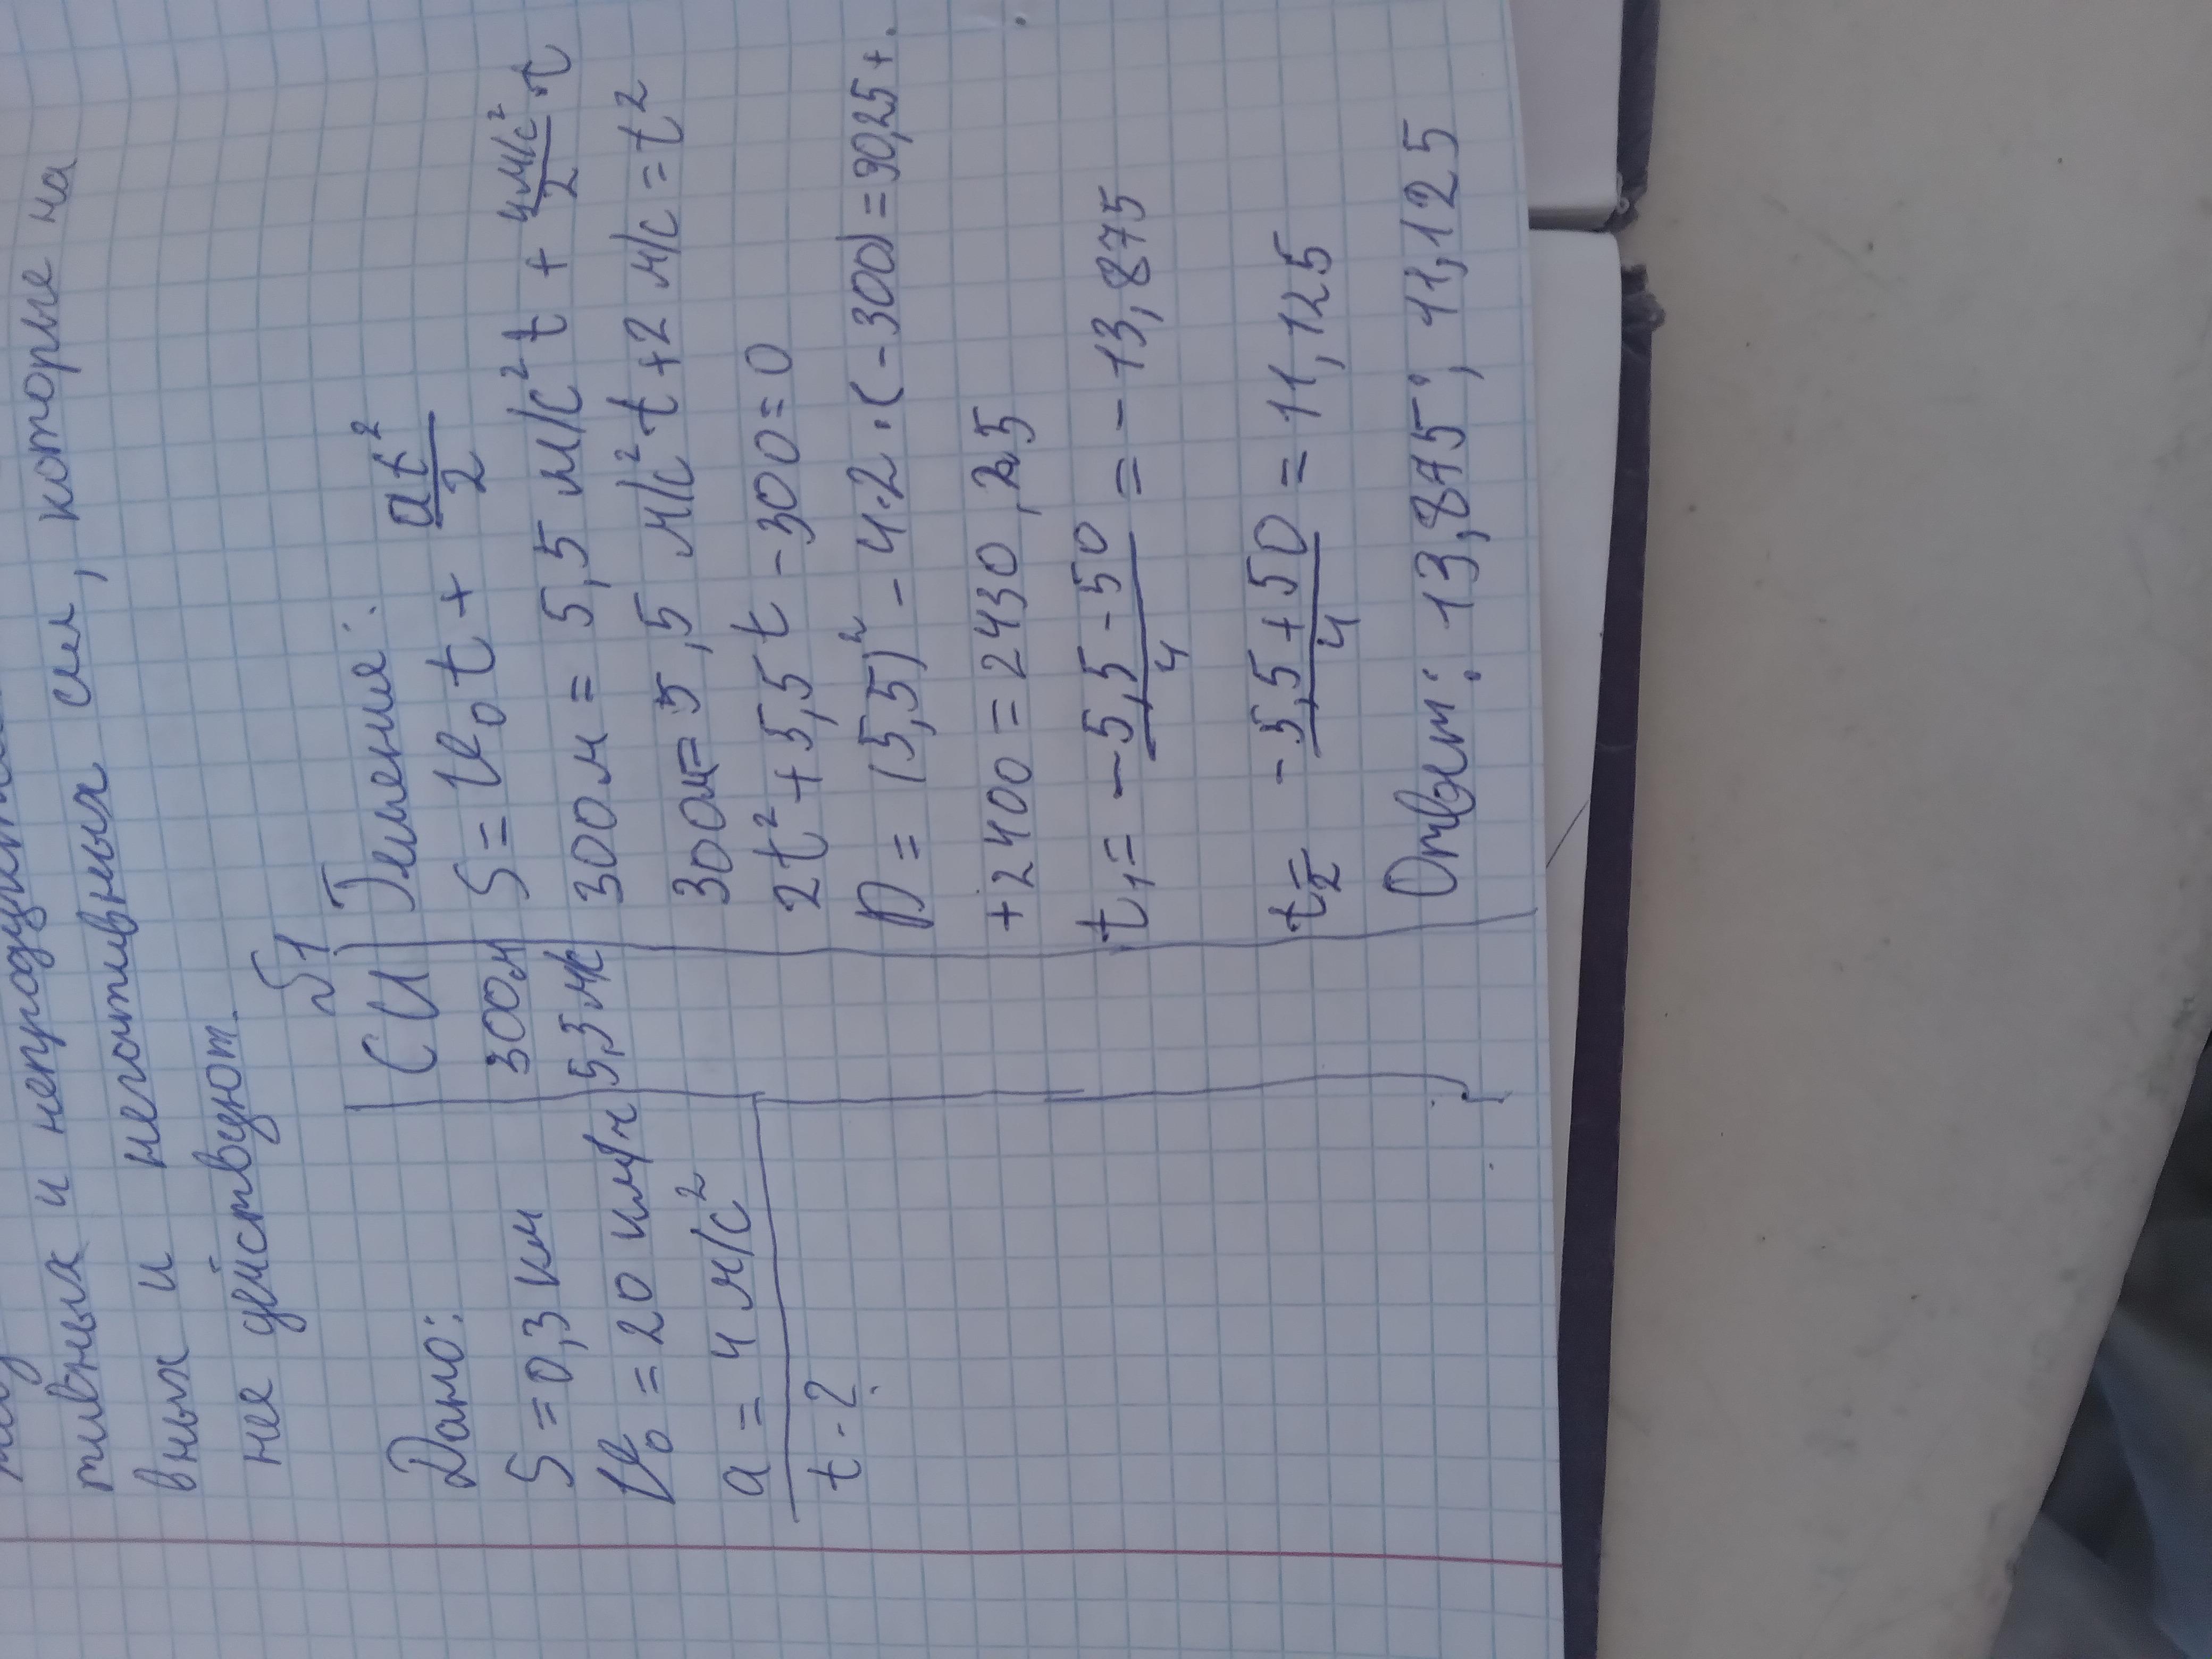 тивных и непродуктив
вных и негативных сил, которые на
не действуют.
№1
Дано:
S = 0,3 км
V₀ = 20 км/ч
a = 4 м/с²
t - ?
СИ
300м
5,5 м/с
Решение:
S = V₀t + at²/2
300м = 5,5 м/с² t + 4м/с²/2 · t
300м = 5,5 м/с² t + 2 м/с = t²
2t² + 5,5t - 300 = 0
D = (5,5)² - 4·2·(-300) = 90,25 +
+2400 = 2430,25
t₁ = -5,5 - 50/4 = -13,875
t₂ = -5,5 + 50/4 = 11,125
Ответ: 13,875; 11,125